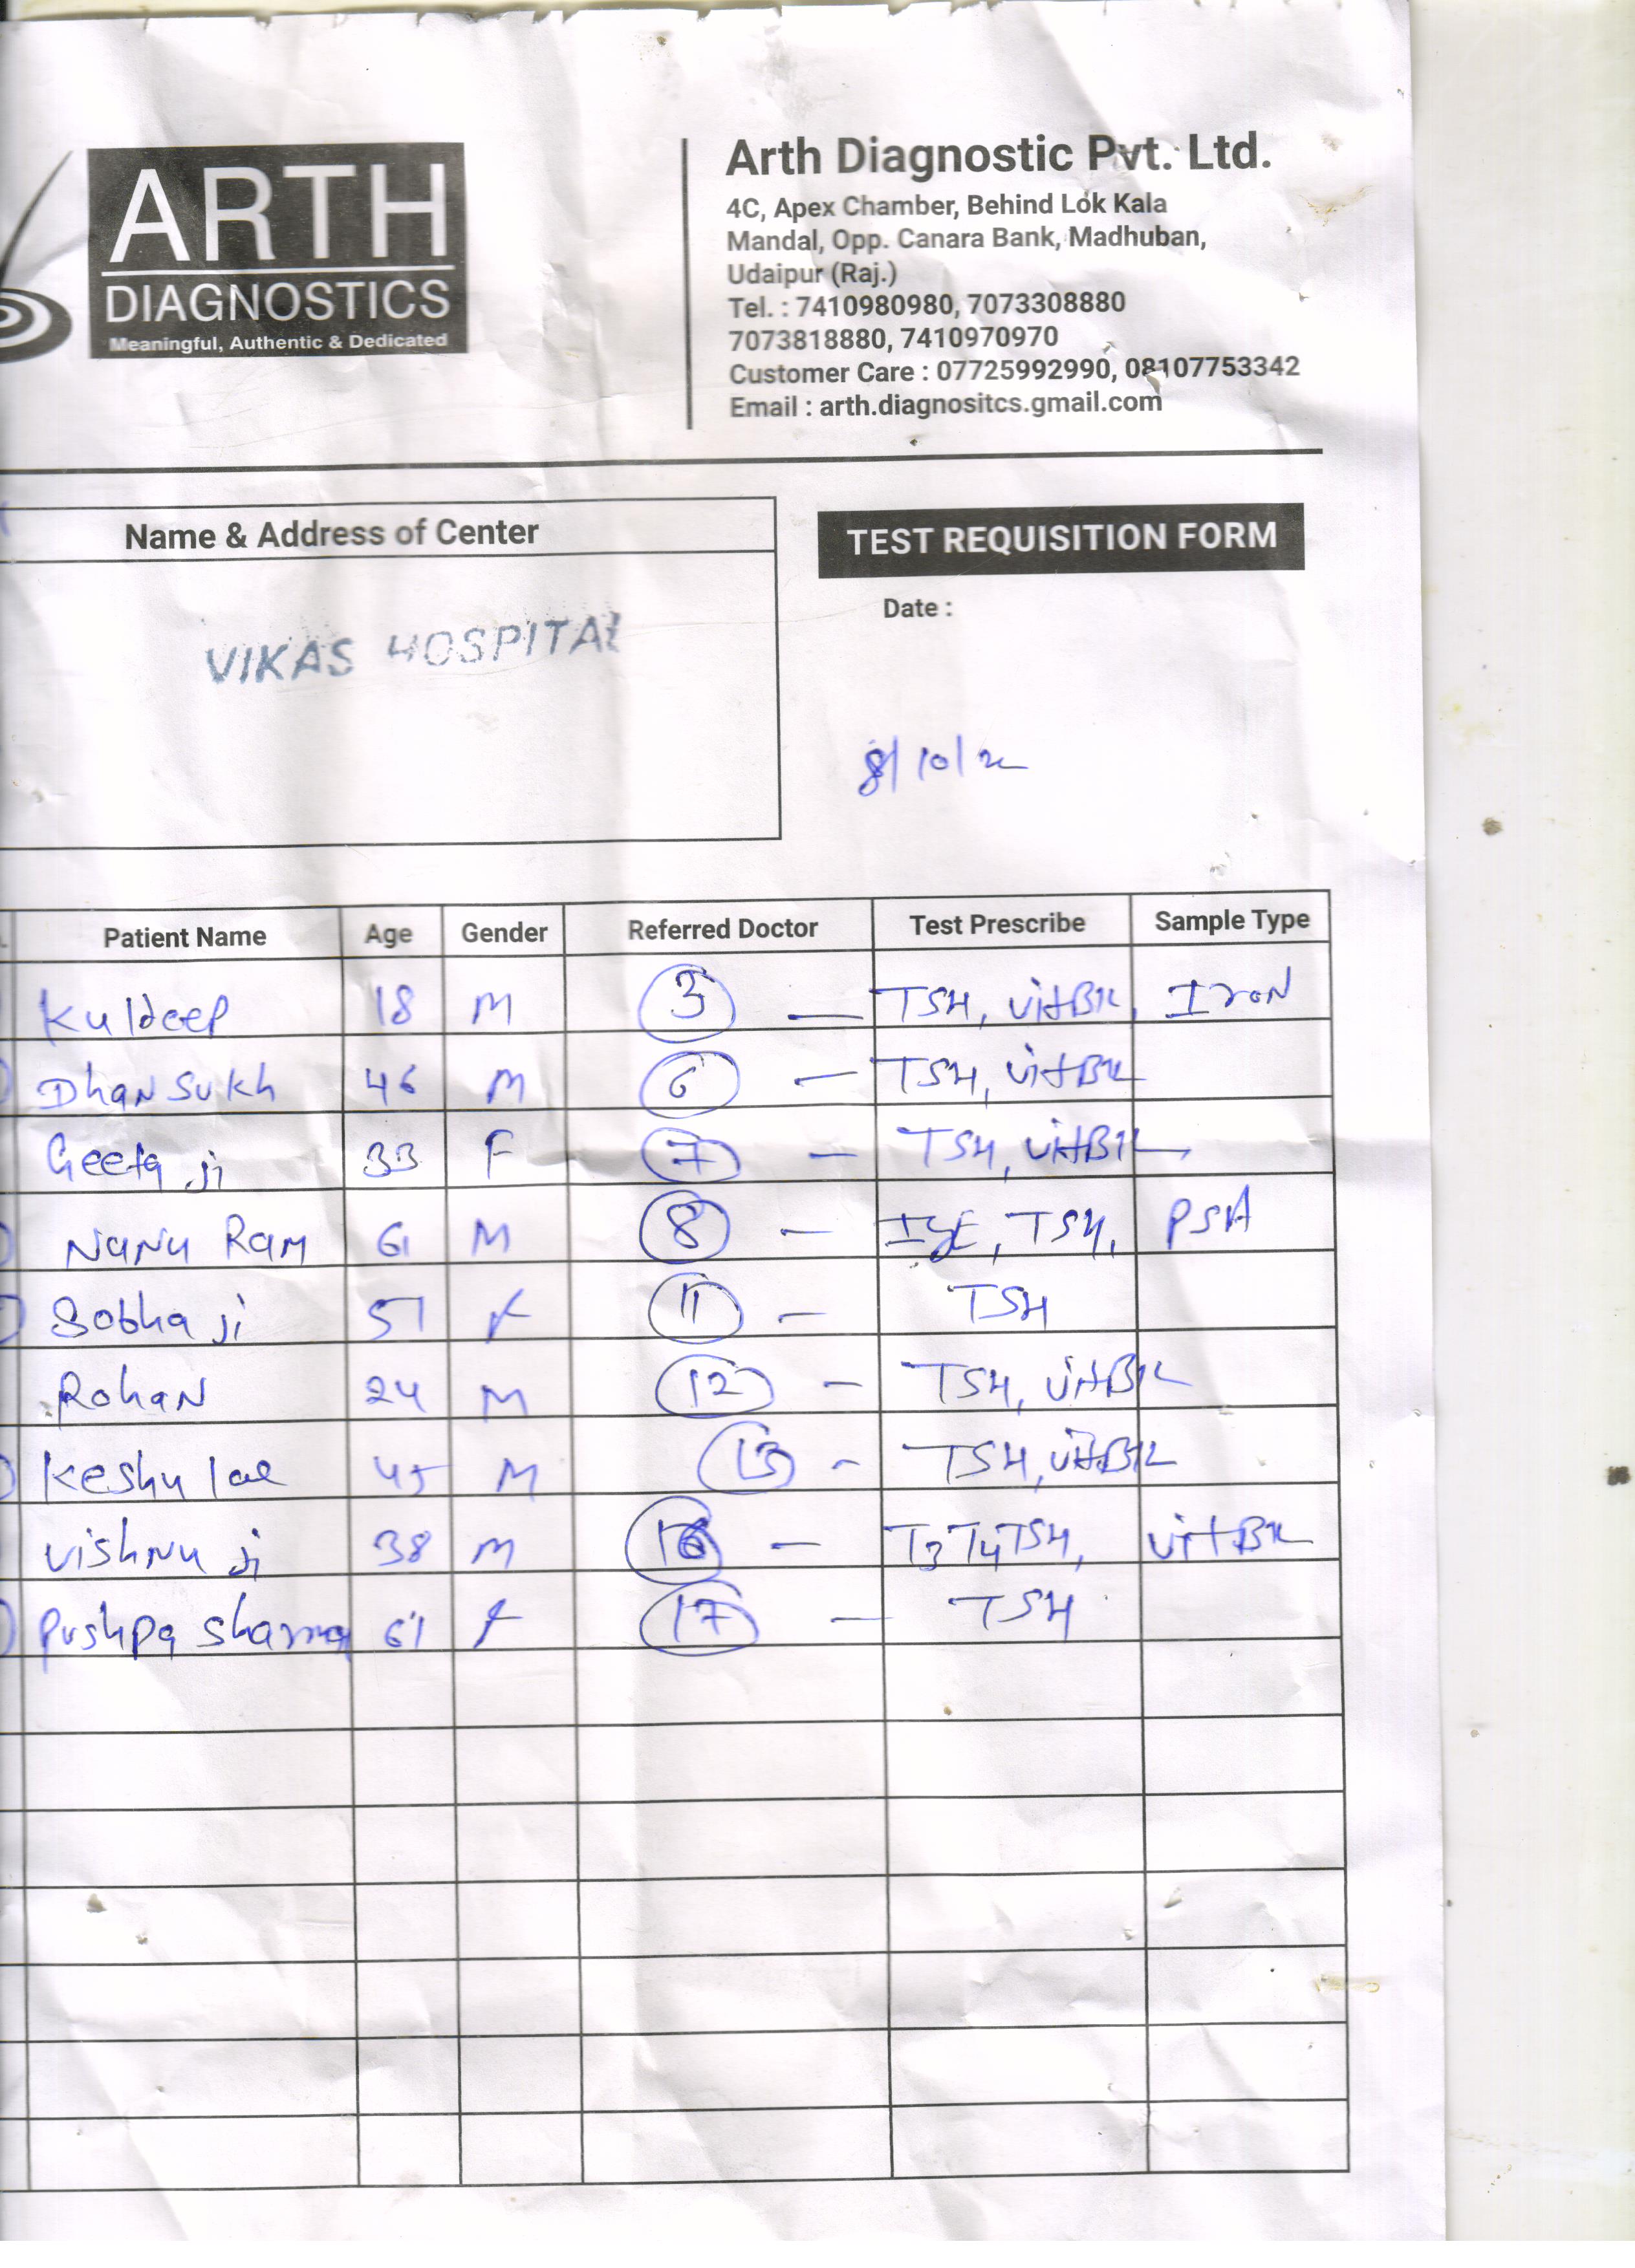 ARTH
DIAGNOSTICS
Meaningful, Authentic & Dedicated
Arth Diagnostic Pvt. Ltd.
4C, Apex Chamber, Behind Lok Kala
Mandal, Opp. Canara Bank, Madhuban,
Udaipur (Raj.)
Tel. : 7410980980, 7073308880
7073818880, 7410970970
Customer Care : 07725992990, 08107753342
Email : arth.diagnositcs.gmail.com
Name & Address of Center
VIKAS HOSPITAL
TEST REQUISITION FORM
Date :
8/10/22
Patient Name Age Gender Referred Doctor Test Prescribe Sample Type
Kuldeep 18 M 3 — TSH, VitB12, Iron
Dhansukh 46 M 6 — TSH, VitB12
Geeta ji 33 F 7 — TSH, VitB12
Nanu Ram 61 M 8 — IgE, TSH, PSA
Sobha ji 57 F 11 — TSH
Rohan 24 M 12 — TSH, VitB12
Keshu lal 45 M 13 - TSH, VitB12
Vishnu ji 38 M 16 — T3 T4 TSH, VitB12
Pushpa Sharma 61 F 17 — TSH